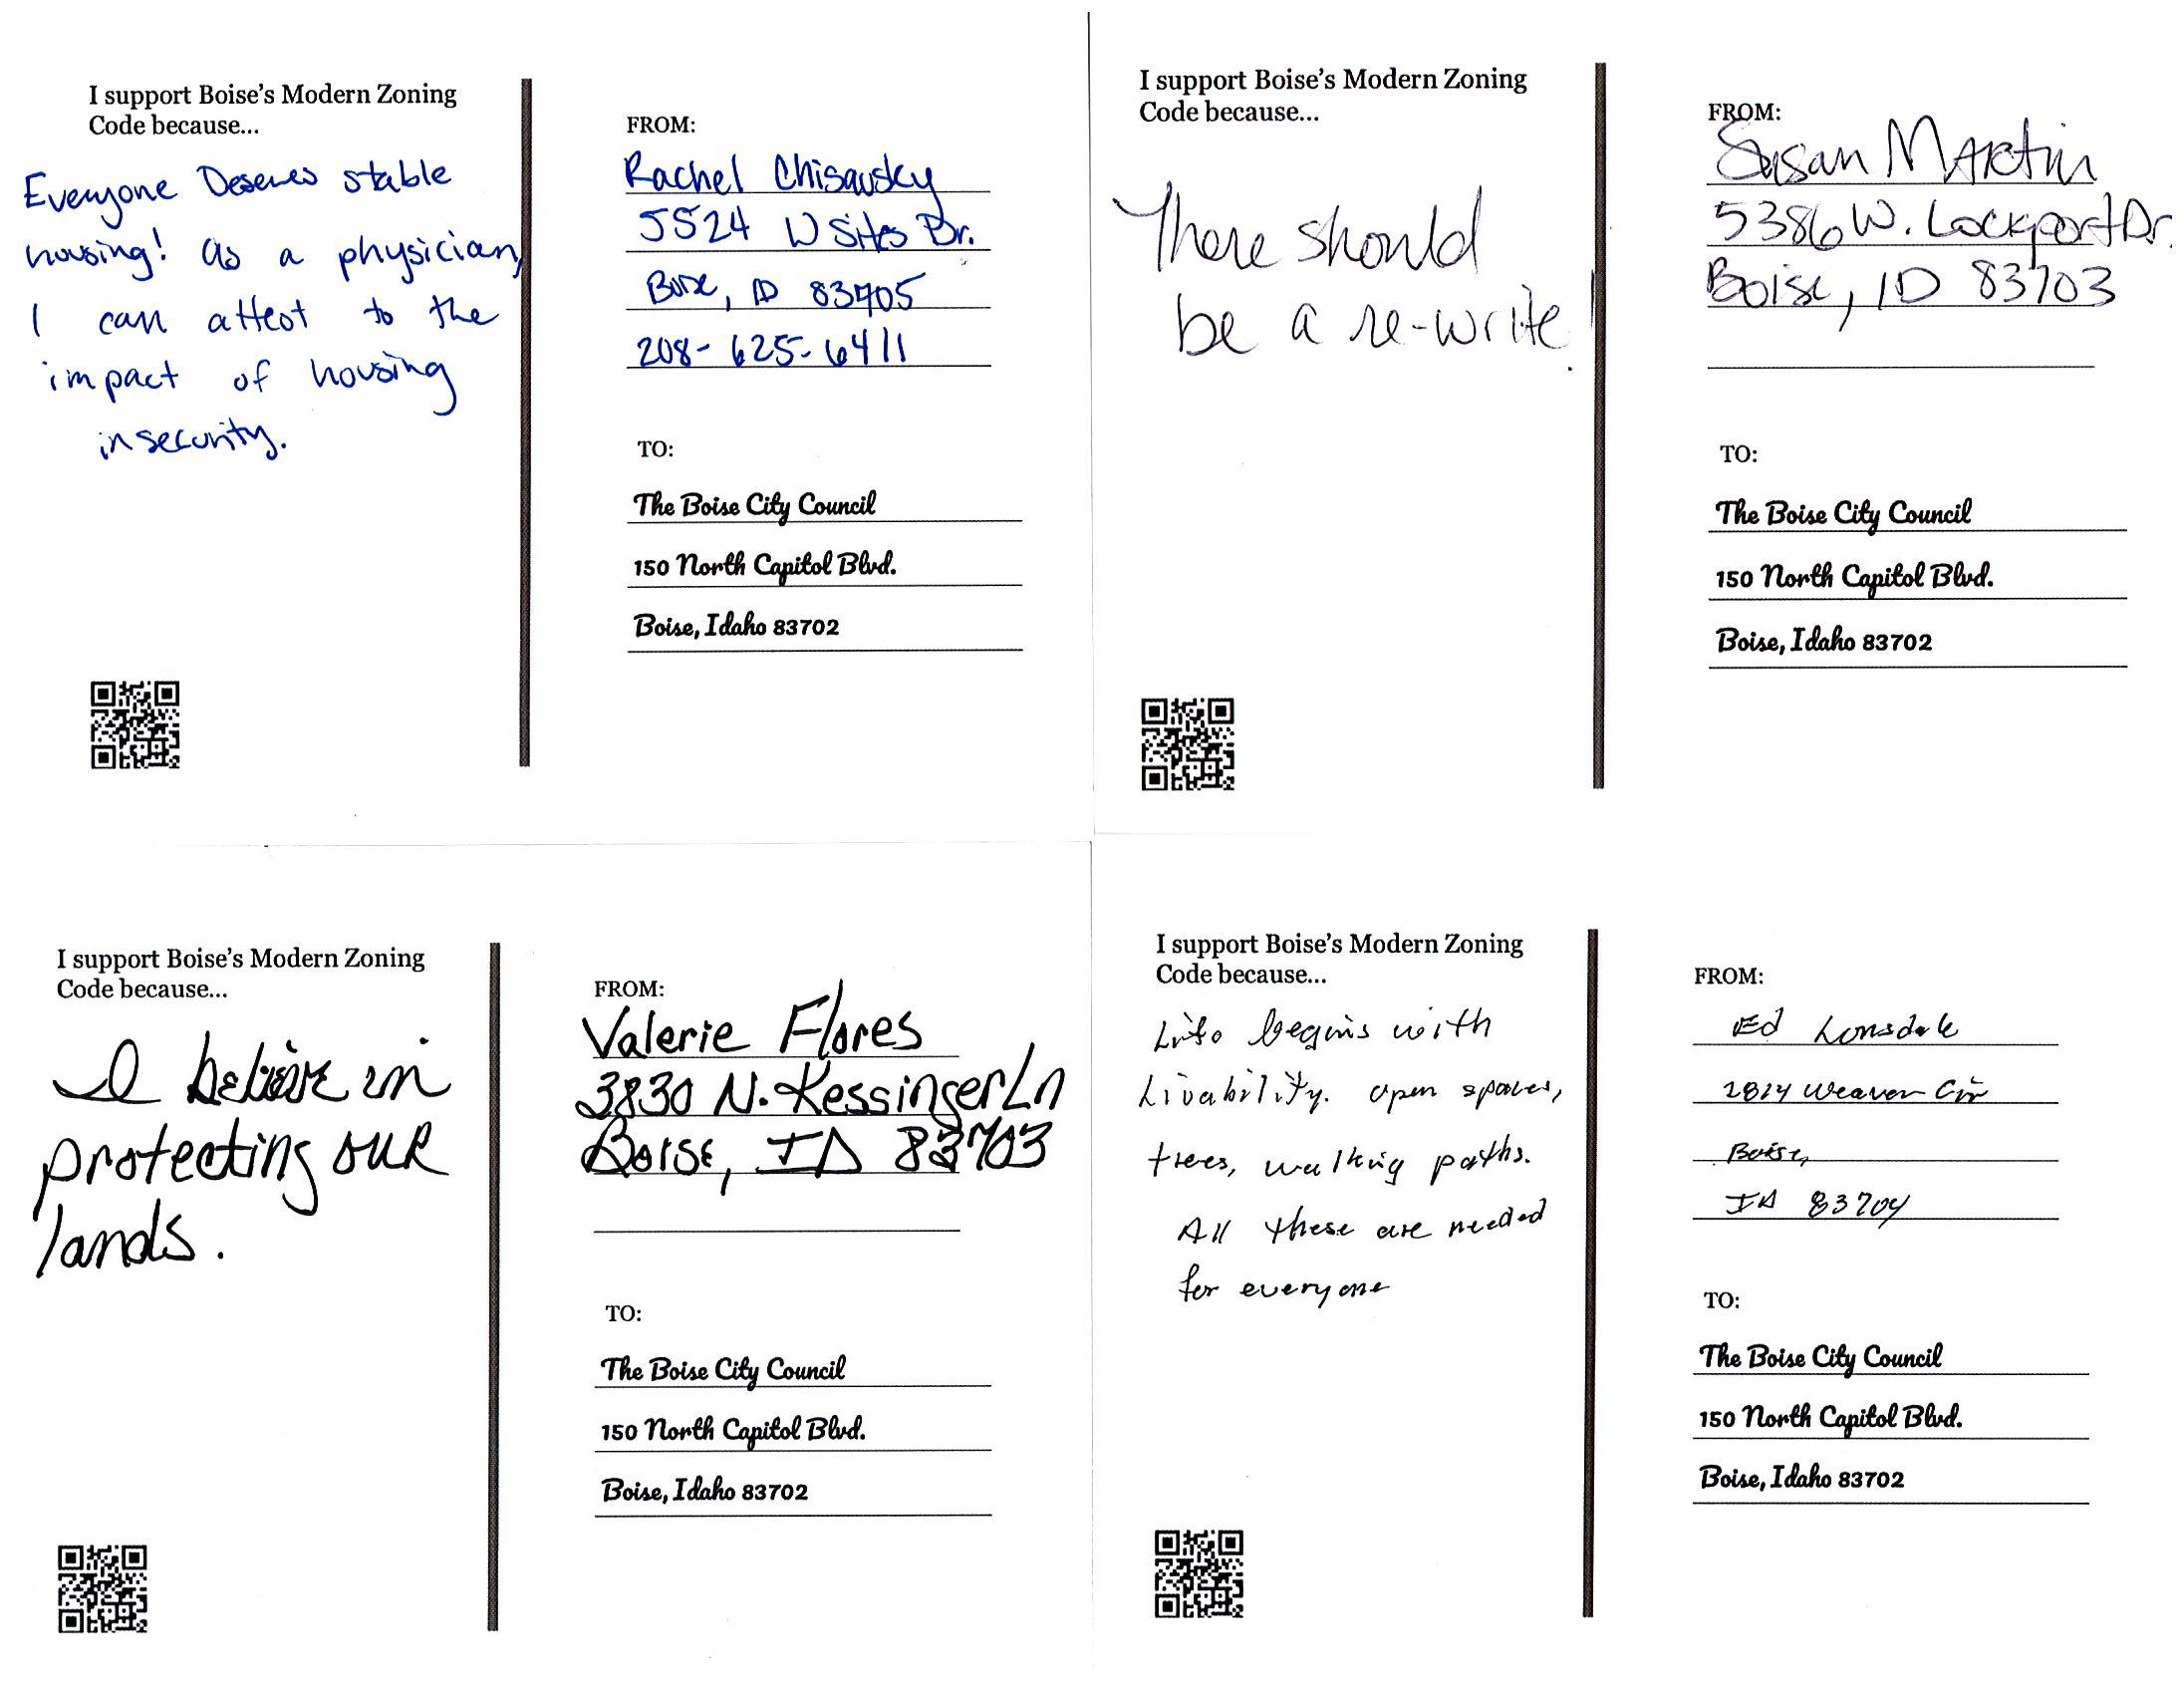 I support Boise's Modern Zoning
Code because...
Everyone Deserves stable
housing! As a physician,
I can attest to the
impact of housing
insecurity.
FROM:
Rachel Chisausky
5524 W Sites Dr.
Boise, ID 83705
208-625-6411
TO:
The Boise City Council
150 North Capitol Blvd.
Boise, Idaho 83702
I support Boise's Modern Zoning
Code because...
There should
be a re-write!
FROM:
Susan Martin
5386 W. Lockport Dr.
Boise, ID 83703
TO:
The Boise City Council
150 North Capitol Blvd.
Boise, Idaho 83702
I support Boise's Modern Zoning
Code because...
I believe in
protecting our
lands.
FROM:
Valerie Flores
3830 N. Kessinger Ln
Boise, ID 83703
TO:
The Boise City Council
150 North Capitol Blvd.
Boise, Idaho 83702
I support Boise's Modern Zoning
Code because...
Life begins with
Livability. open spaces,
trees, walking paths.
All these are needed
for everyone
FROM:
Ed Lonsdale
2814 Weaver Cir
Boise,
ID 83704
TO:
The Boise City Council
150 North Capitol Blvd.
Boise, Idaho 83702